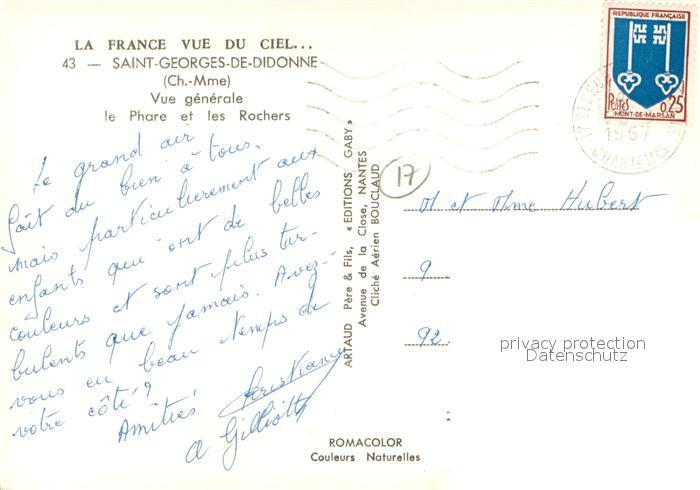 LA FRANCE VUE DU CIEL...
43 — SAINT-GEORGES-DE-DIDONNE
(Ch.-Mme)
Vue générale
le Phare et les Rochers
Le grand air
fait du bien à tous,
mais particulièrement aux
enfants qui ont de belles
couleurs et sont plus tur-
bulents que jamais. Avez-
vous eu beau temps de
votre côté ?
Amitiés Christiane
a Gilliotte
ARTAUD Père & Fils, « EDITIONS GABY »
Avenue de la Close, NANTES
Cliché Aérien BOUCLAUD
ROMACOLOR
Couleurs Naturelles
REPUBLIQUE FRANÇAISE
POSTES 0,25
MONT-DE-MARSAN
17 ST GEO
1967
CHARENTE
17
M et Mme Hubert
9
92
privacy protection
Datenschutz